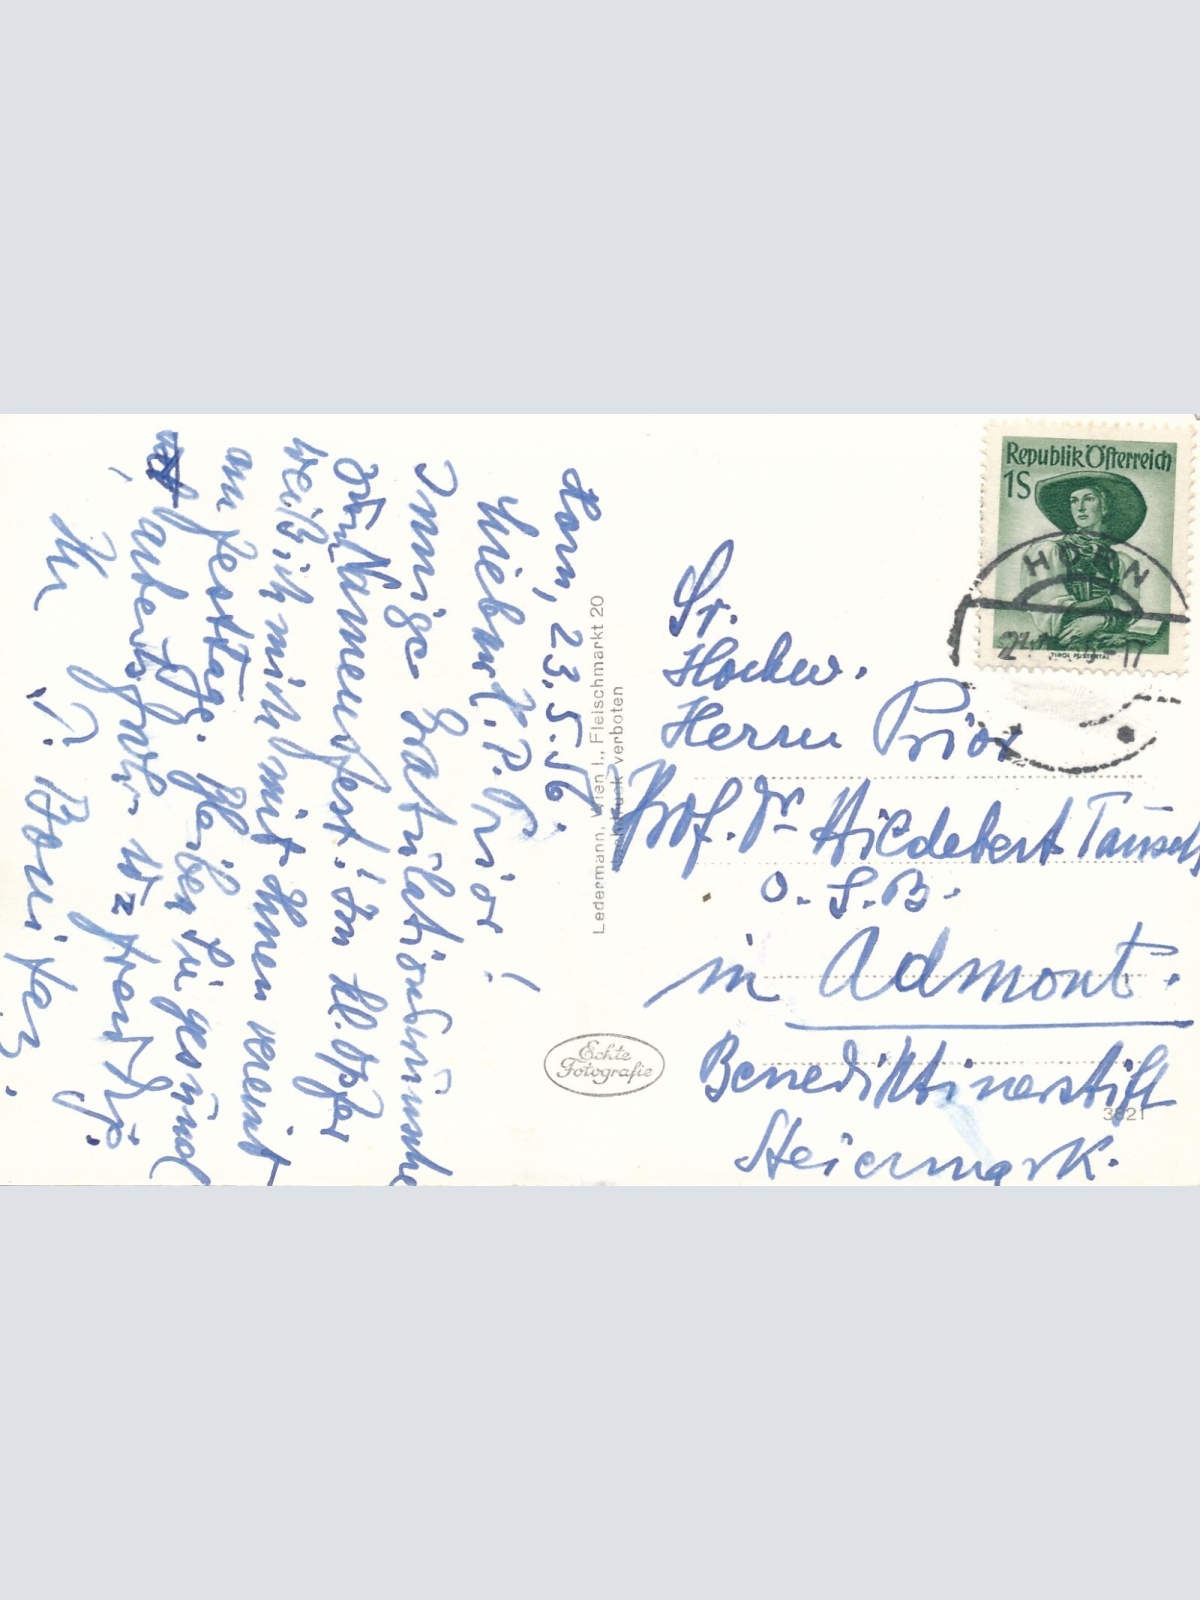 Horn, 23.5.56.
Lieber H. P. Prior!
Innige Gratulationswünsche
zum Namensfest! Im hl. Opfer
weiß ich mich mit Ihnen vereint
am Festtage. Bleiben Sie gesund
arbeitsfroh
Ihr
P. Bonifaz.
Ledermann, Wien I., Fleischmarkt 20
Nachdruck verboten
Echte
Fotografie
Republik Österreich
1S
TIROL PUSTERTAL
HORN
Sr.
Hochw.
Herrn Prior
Prof. Dr Hildebert Tausch
O. S. B.
in Admont.
Benediktinerstift
3821
Steiermark.